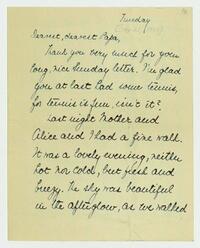 Tuesday
Dearest, dearest Papa,
Thank you very much for your
long, nice Sunday letter. I'm glad
you at last had some tennis,
for tennis is fun, isn't it?
Last night Mother and
Alice and I had a fine walk.
It was a lovely evening, neither
hot nor cold, but fresh and
breezy. The sky was beautiful
in the afterglow, as we walked